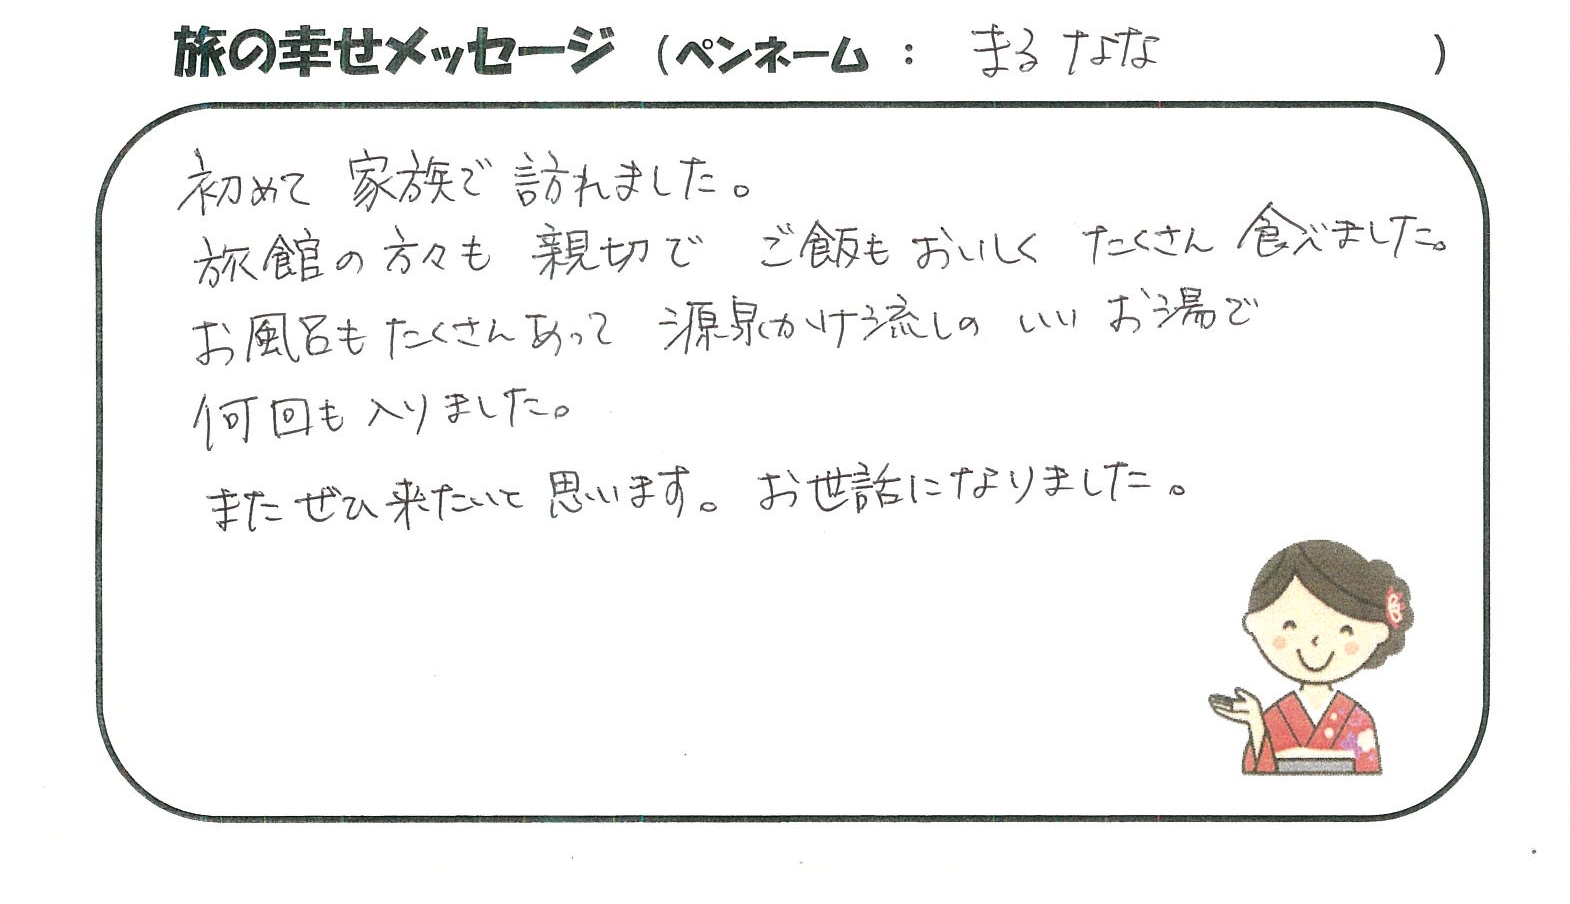 旅の幸せメッセージ (ペンネーム : まるなな )
初めて 家族で 訪れました。
旅館の方々も 親切で ご飯も おいしく たくさん 食べました。
お風呂も たくさん あって 源泉かけ流しの いい お湯で
何回も 入りました。
また ぜひ 来たいと 思います。 お世話になりました。